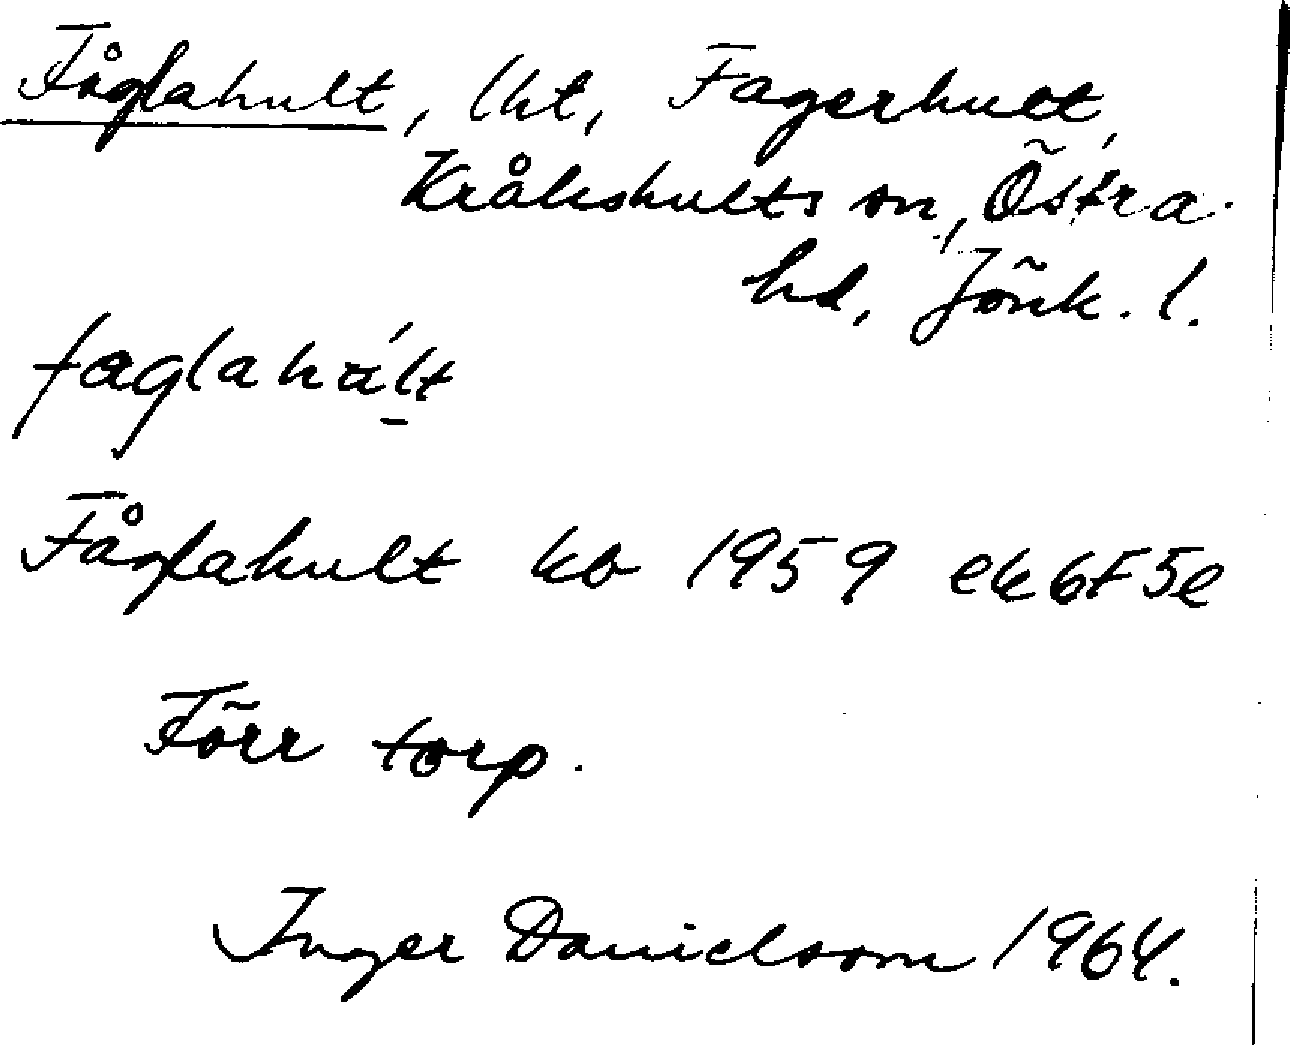 Fåglahult, lht, Fagerhult,
Kråkshults sn, Östra
hd, Jönk. l.
faglahált
Fåglahult kb 1959 ek 6F5e
Förr torp.
Inger Danielsson 1964.